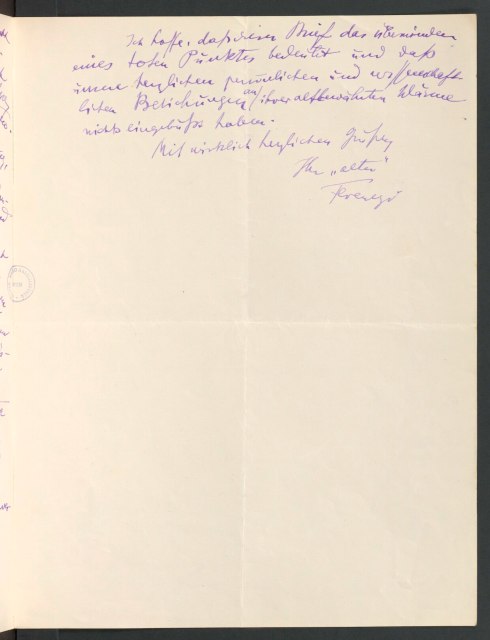 Ich hoffe, daß dieser Brief das Überwinden
eines toten Punktes bedeutet und daß
unsere herzlichen persönlichen und wissenschaft-
lichen Beziehungen an ihrer altbewährten Wärme
nichts eingebüßt haben.
Mit wirklich herzlichen Grüßen
Ihr „alter"
Ferenczi